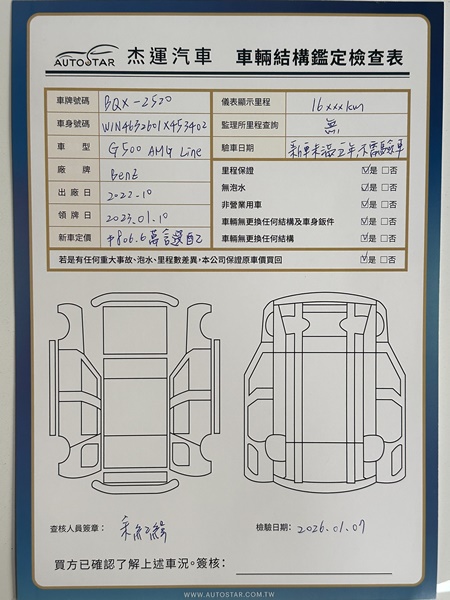 AUTOSTAR 杰運汽車 車輛結構鑑定檢查表
車牌號碼 BQX-2520
車身號碼 W1N4632601X453402
車型 G500 AMG Line
廠牌 Benz
出廠日 2022.10
領牌日 2023.01.10
新車定價 806.6萬含選配
儀表顯示里程 16xxxkm
監理所里程查詢 無
驗車日期 新車未滿五年不需驗車
里程保證 ☑是 □否
無泡水 ☑是 □否
非營業用車 ☑是 □否
車輛無更換任何結構及車身鈑件 ☑是 □否
車輛無更換任何結構 ☑是 □否
若是有任何重大事故、泡水、里程數差異,本公司保證原車價買回 ☑是 □否
查核人員簽章:
檢驗日期: 2026.01.07
買方已確認了解上述車況。簽核:
WWW.AUTOSTAR.COM.TW